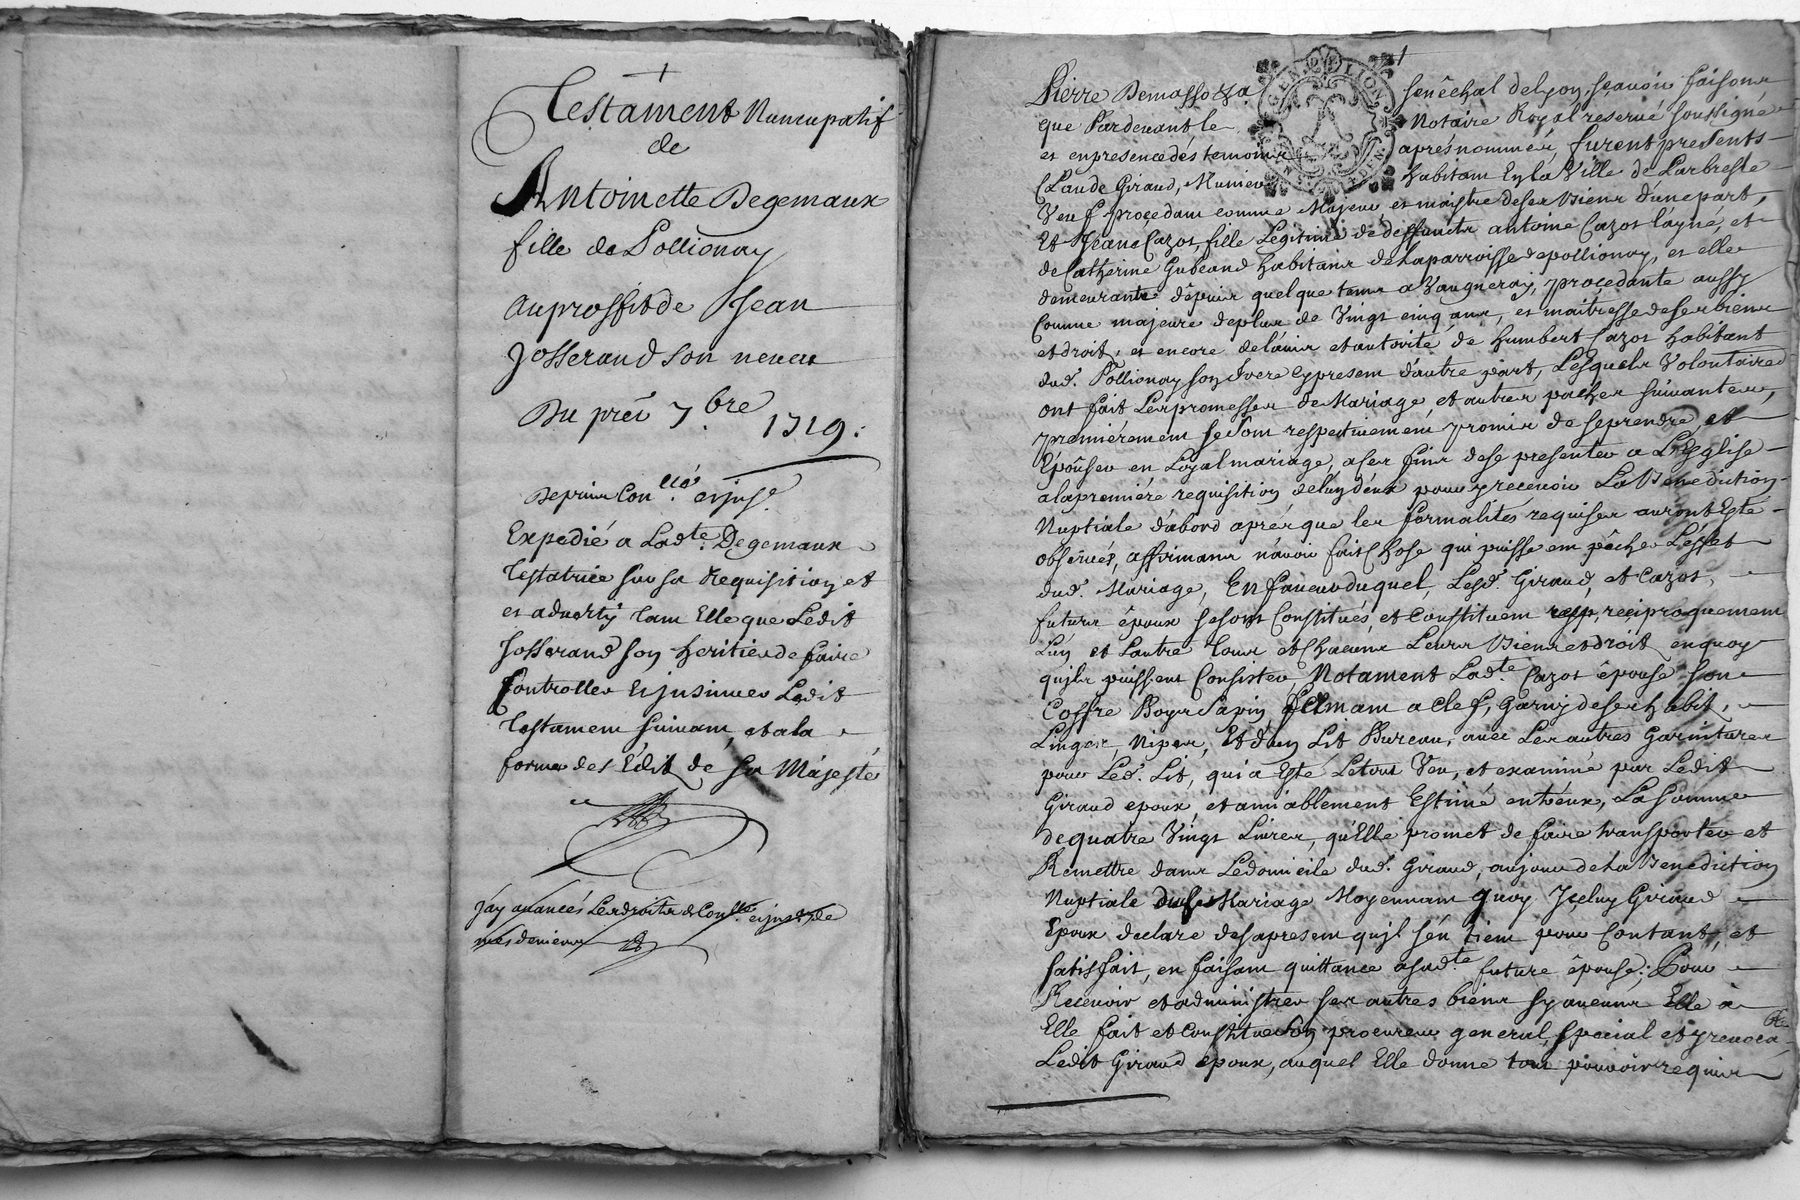 Testament Nuncupatif
de
Antoinette Degemaux
fille de Pollionay
au proffit de Jean
Josserand son neveu
Du prēr 7.bre 1719.
Expedié a Ladte. Degemaux
Testatrice sur sa requisition et
et adverty tant Elle que Ledit
Josserand son heritier de faire
Controller et jnsinuer Ledit
Testament suivant et a la
forme des Edit de Sa Majesté
j'ay avancés Les droits de Conlle. et jnsn. de
mes deniers
GEN DE LION
Pierre Demassotza Senêchal de Lyon, sçavoir faisons
que Pardevant le Notaire Royal reservé soussigné
et en presence des temoins aprés nommés furent presents
Claude Giraud, Munier habitant En la Ville de Larbresle
Veuf procedant comme Majeur et maistre de ses Biens d'une part,
Et Jeane Cazot, fille Legitime de deffuncts antoine Cazot l'ayné, et
de Catherine Gubeand habitans de la parroisse de pollionay, et elle
demeurante depuis quelque tems a Vaugneray, procedante aussy
Comme majeure de plus de Vingt cinq ans, et maitresse de ses biens
et droit, et encore de l'avis et autorité de humbert Cazot habitant
dud. Pollionay son frere cy present d'autre part, Lesquels Volontaires
ont fait Les promesses de Mariage, et autres paches suivantes,
premiérement se sont respectivement promis de se prendre et
Épouser en Loyal mariage, a ses fins de se presenter a L'Eglise
a la premiére requisition de l'un d'eux pour y recevoir La Benediction
Nuptiale d'abord aprés que les formalités requises auront Esté
observés, affirmans n'avoir fait Chose qui puisse empêcher L'effet
dud. Mariage, En faveur duquel, Lesd. Giraud, et Cazot,
futurs époux se sont Constitués, et Constituent resp. reciproquement
L'un et L'autre tous et Chacuns Leurs Biens et droit en quoy
qu'jls puissent Consister, Notament Ladte. Cazot épouse son
Coffre Boys Sapin fermant a Clef, Garny de ses habit,
Linges, Nipes, Et d'un Lit Bureau, avec Les autres Garnitures
pour Led. Lit, qui a Esté Le tout Veu, et examiné par Ledit
Giraud epoux et amiablement Estimé entr'eux, La Somme
de quatre Vingt Livres, qu'Elle promet de faire transporter et
Remettre dans Le domicile dud. Giraud, au jour de la Benediction
Nuptiale dud. Mariage Moyennant quoy Jceluy Giraud
Epoux declare des a present qu'jl s'en tient pour Contant et
satisfait, en faisant quittance a sadte. future épouse; Pour
Recevoir et administrer ses autres biens sy aucuns Elle à
Elle fait et Constitue Son procureur general, special et jrrevoca
Ledit Giraud epoux, auquel Elle donne tout pouvoir requis